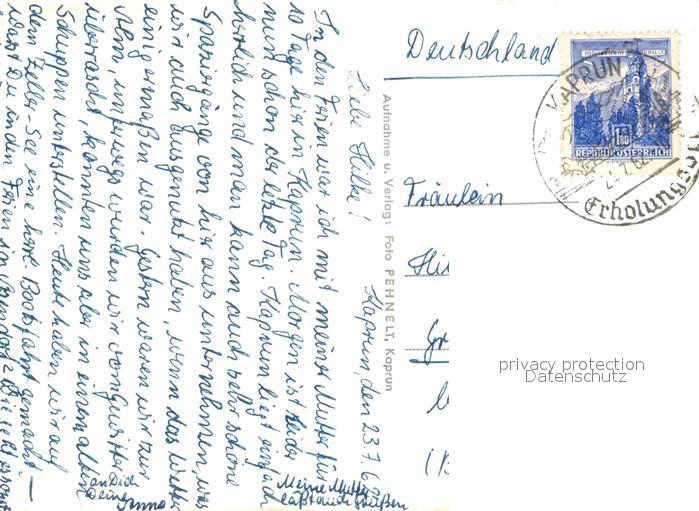 Kaprun, den 23.7.63
Liebe Hilke!
In den Ferien war ich mit meiner Mutter für
10 Tage hier in Kaprun. Morgen ist leider
nun schon der letzte Tag. Kaprun liegt einfach
herrlich und man kann auch sehr schöne
Spaziergänge von hier aus unternehmen, was
wir auch ausgenutzt haben, wenn das Wetter
einigermaßen war. Gestern waren wir zur
Alm, unterwegs wurden wir vom Gewitter
überrascht, konnten uns aber in einem alten
Schuppen unterstellen. Heute haben wir auf
dem Zeller-See eine herrl. Bootsfahrt gemacht. —
Warst Du in den Ferien in
Wie geht es sonst
an Dich
Deine Anno
Meine Mutter
läßt auch grüßen
Aufnahme u. Verlag: Foto PEHNELT, Kaprun
Deutschland
Fräulein
REPUBLIK ÖSTERREICH
1.80
KAPRUN
Erholungs
privacy protection
Datenschutz